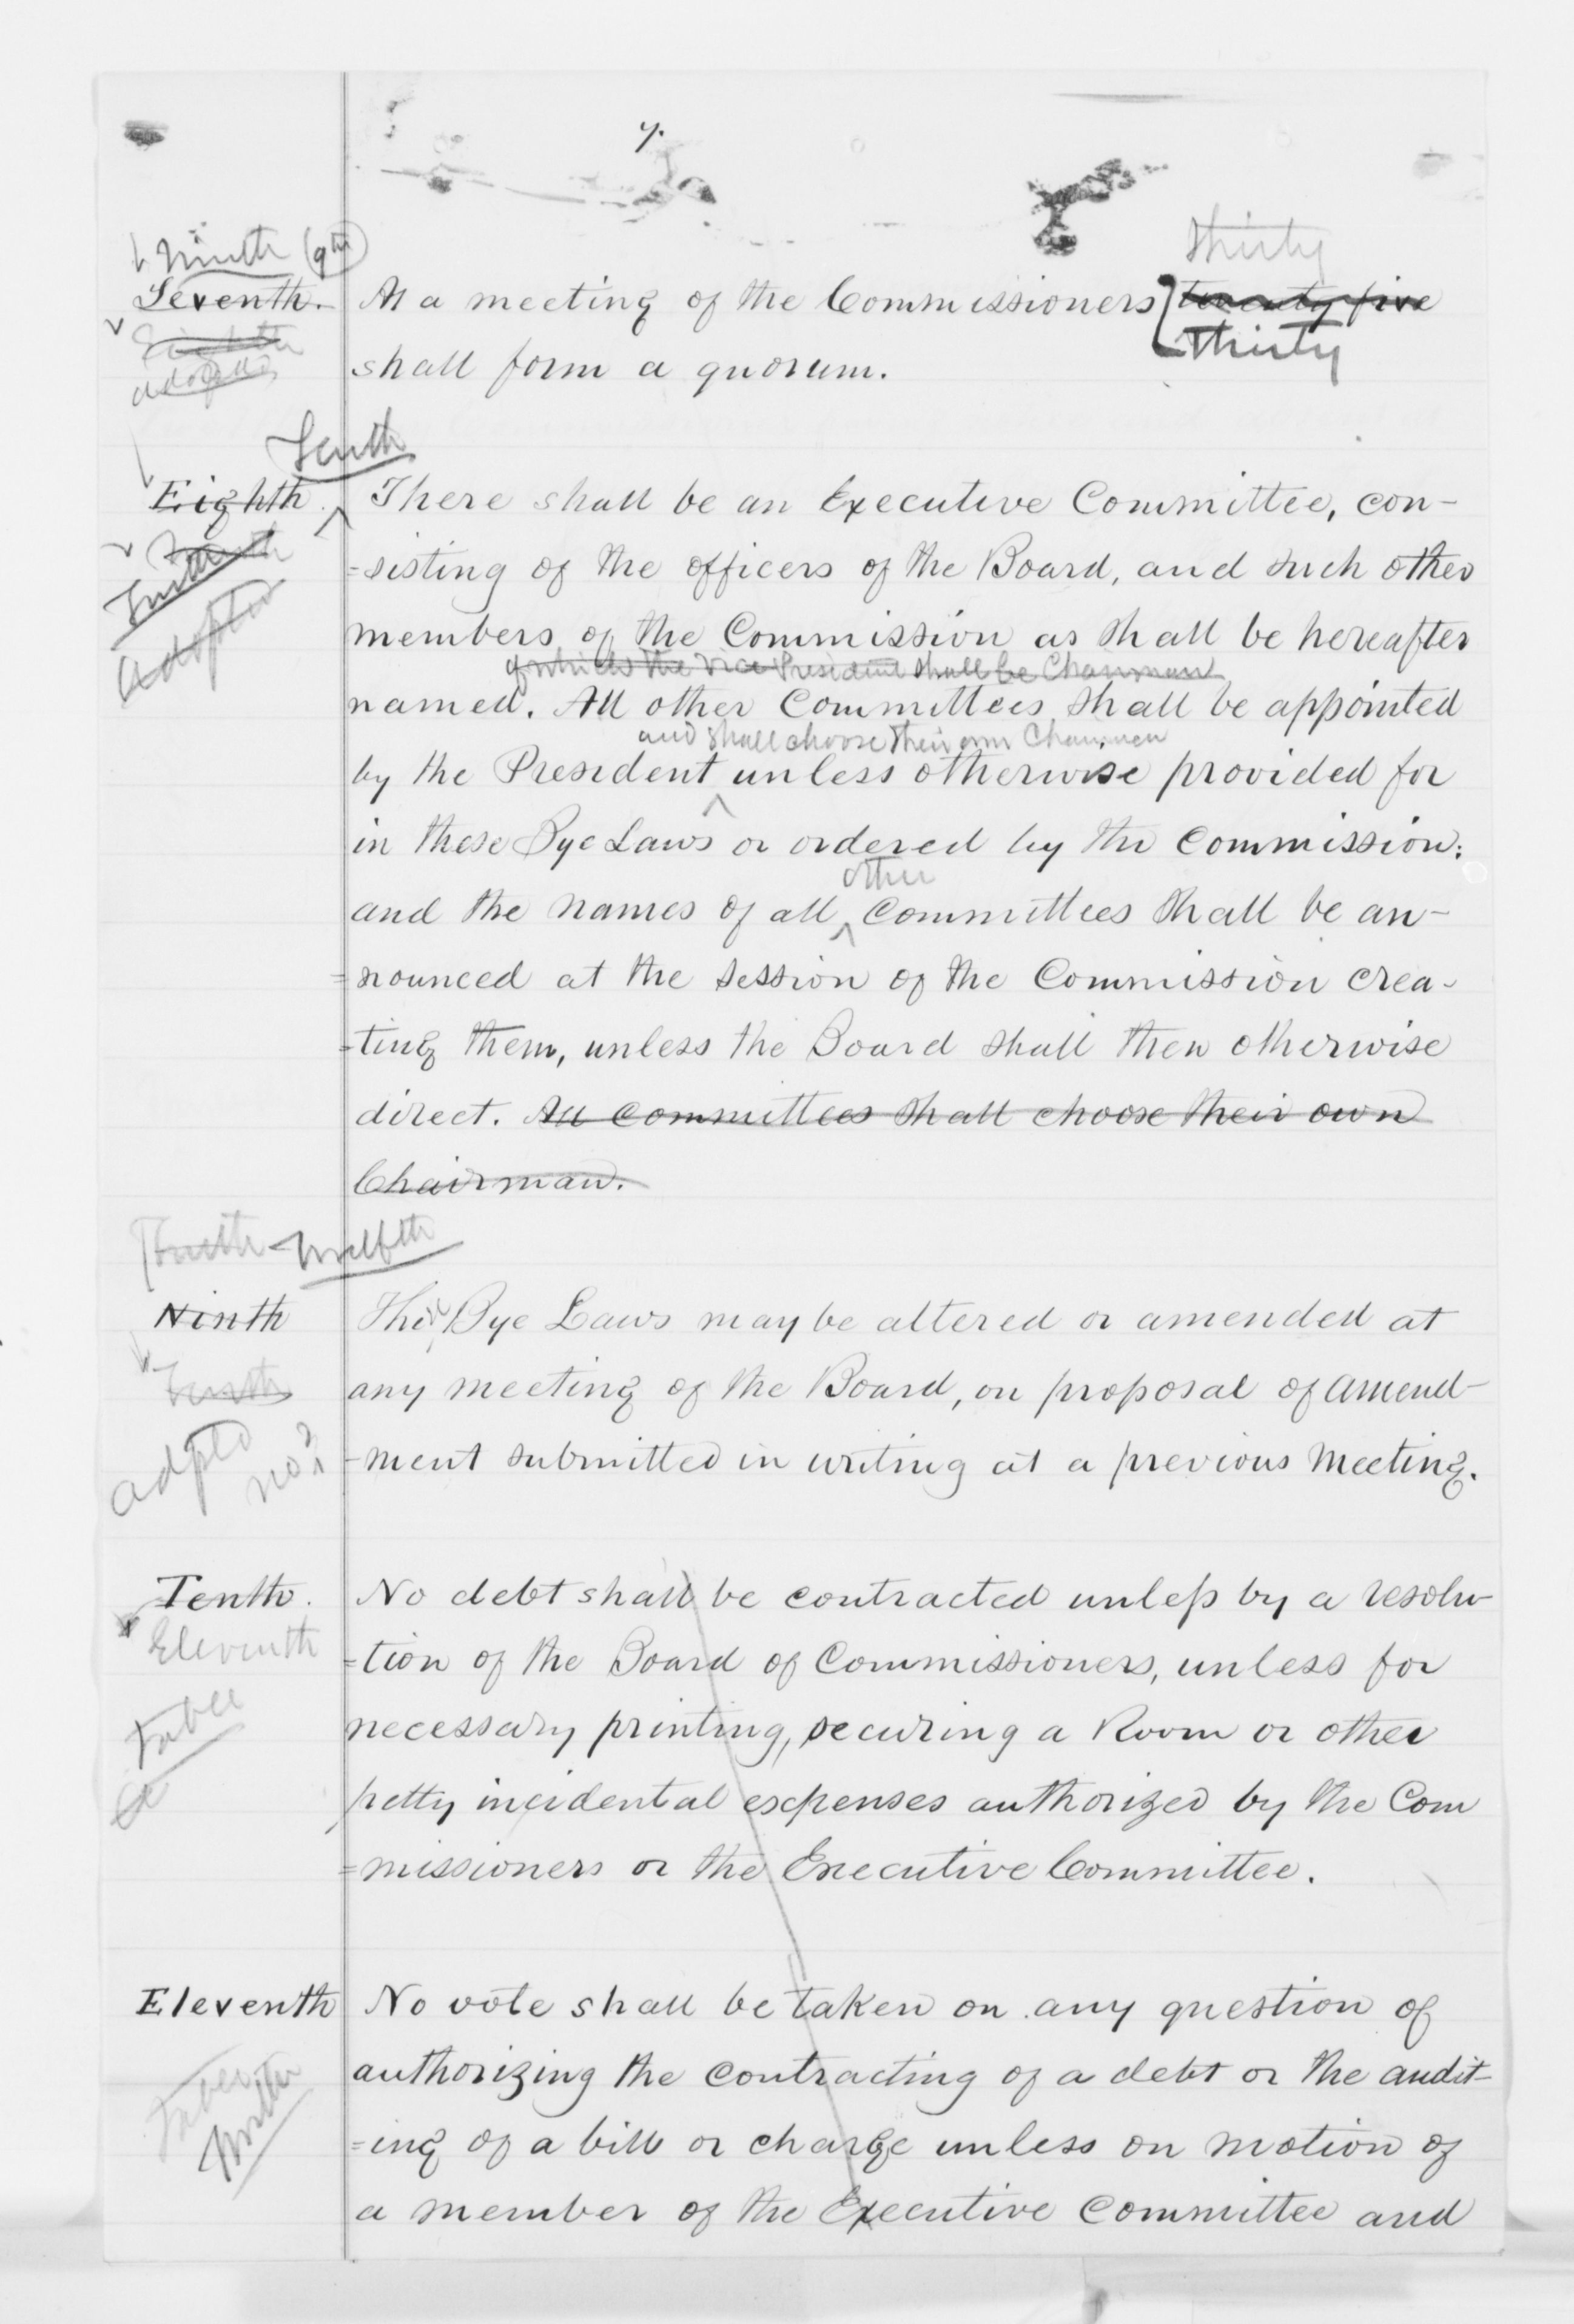 7.
thirty
Ninth (9th)
Seventh. At a meeting of the Commissioners twenty five
thirty
adopted
shall form a quorum.
Tenth
Eighth There shall be an Executive Committee, con-
=sisting of the officers of the Board, and such other
Adopted
members of the Commission as shall be hereafter
of which the Vice President shall be Chairman
named. All other Committees shall be appointed
and shall choose their own Chairmen
by the President unless otherwise provided for
in these Bye Laws or ordered by the Commission:
other
and the names of all Committees shall be an-
=nounced at the session of the Commission crea-
=ting them, unless the Board shall then otherwise
direct. All Committees shall choose their own
Chairman.
Twelfth
Ninth Bye Laws may be altered or amended at
Tenth
any meeting of the Board, on proposal of amend-
adptd no?
-ment submitted in writing at a previous meeting.
Tenth. No debt shall be contracted unless by a resolu-
Eleventh
=tion of the Board of Commissioners, unless for
necessary printing, securing a Room or other
petty incidental expenses authorized by the Com
=missioners or the Executive Committee.
Eleventh No vote shall be taken on any question of
authorizing the contracting of a debt or the audit-
=ing of a bill or charge unless on motion of
a member of the Executive Committee and